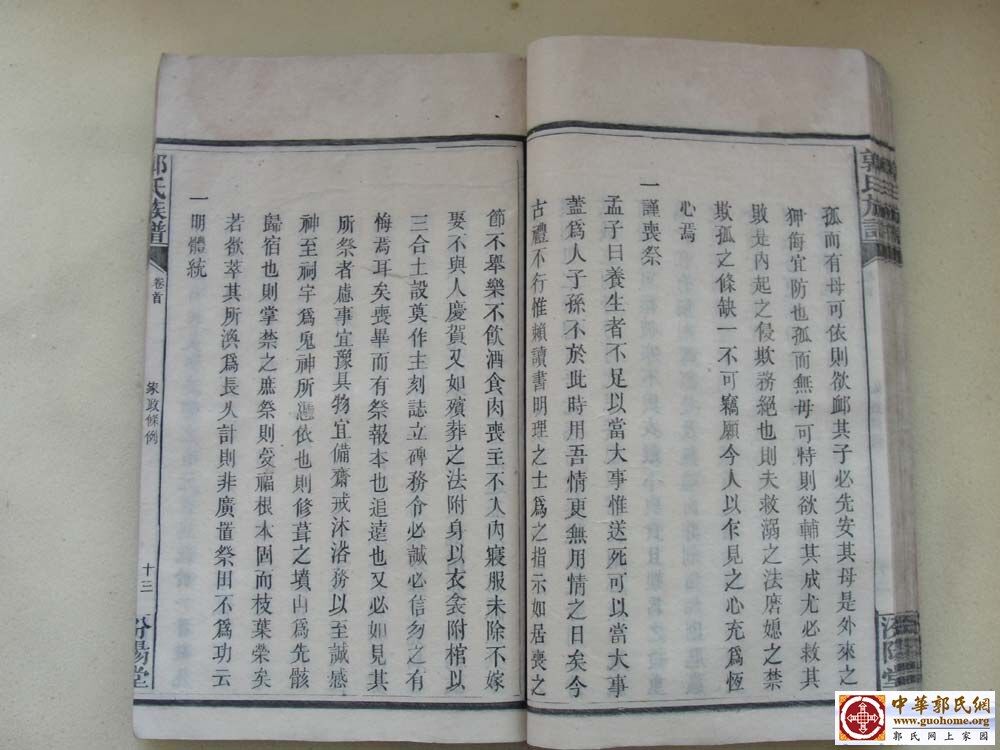 郭氏族譜
汾陽堂
孤而有母可依則欲卹其子必先安其母是外來之
狎侮宜防也孤而無母可恃則欲輔其成尤必救其
敗是內起之侵欺務絕也則夫救溺之法磨媳之禁
欺孤之條缺一不可竊願今人以乍見之心充爲恆
心焉
一謹喪祭
孟子曰養生者不足以當大事惟送死可以當大事
蓋爲人子孫不於此時用吾情更無用情之日矣今
古禮不行惟賴讀書明理之士爲之指示如居喪之
節不舉樂不飲酒食肉喪主不入內寢服未除不嫁
娶不與人慶賀又如殯葬之法附身以衣衾附棺以
三合土設奠作主刻誌立碑務令必誠必信勿之有
悔焉耳矣喪畢而有祭報本也追遠也又必如見其
所祭者慮事宜豫具物宜備齋戒沐浴務以至誠感
神至祠宇爲鬼神所憑依也則修葺之墳山爲先骸
歸宿也則掌禁之庶祭則受福根本固而枝葉榮矣
若欲萃其所渙爲長久計則非廣置祭田不爲功云
一明體統
郭氏族譜
卷首
家政條例
十三
汾陽堂
中華郭氏網
www.guohome.org
郭氏網上家園